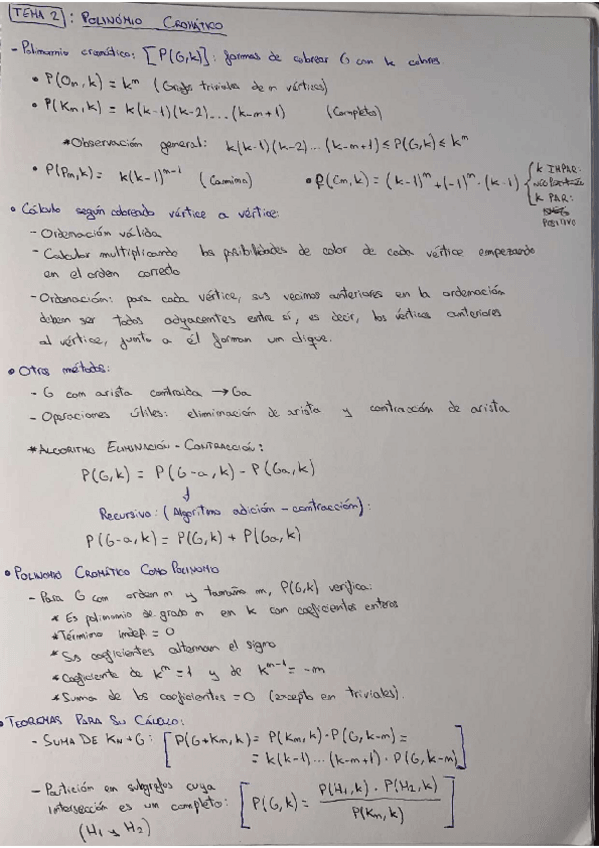 TEMA 2: POLINOMIO CROMÁTICO
- Polinomio cromático: [P(G,k)]: formas de colorear G con k colores.
• P(On,k) = k^n (Grafos triviales de n vértices)
• P(Kn,k) = k(k-1)(k-2)...(k-n+1) (Completo)
*Observación general: k(k-1)(k-2)...(k-n+1) ≤ P(G,k) ≤ k^n
• P(Pn,k) = k(k-1)^n-1 (Camino) • P(Cn,k) = (k-1)^n + (-1)^n · (k-1) { k IMPAR:
k PAR:
POSITIVO
• Cálculo según coloreado vértice a vértice:
- Ordenación válida
- Calcular multiplicando las posibilidades de color de cada vértice empezando
en el orden correcto
- Ordenación: para cada vértice, sus vecinos anteriores en la ordenación
deben ser todos adyacentes entre sí, es decir, los vértices anteriores
al vértice, junto a él forman un clique.
• Otros métodos:
- G con arista contraída → Ga
- Operaciones útiles: eliminación de arista y contracción de arista
*ALGORITMO ELIMINACIÓN - CONTRACCIÓN:
P(G,k) = P(G-a,k) - P(Ga,k)
↓
Recursivo: (Algoritmo adición - contracción):
P(G-a,k) = P(G,k) + P(Ga,k)
• POLINOMIO CROMÁTICO COMO POLINOMIO
- Para G con orden n y tamaño m, P(G,k) verifica:
* Es polinomio de grado n en k con coeficientes enteros
*Término indep. = 0
*Sus coeficientes alternan el signo
*Coeficiente de k^n = 1 y de k^n-1 = -m
*Suma de los coeficientes = 0 (excepto en triviales).
• TEOREMAS PARA SU CÁLCULO:
- SUMA DE KN + G: [P(G+Kn,k) = P(Kn,k) · P(G,k-n) =
= k(k-1)...(k-n+1) · P(G,k-n)]
- Partición en subgrafos cuya
intersección es un completo: [P(G,k) = P(H1,k) · P(H2,k) / P(Kn,k)]
(H1 y H2)